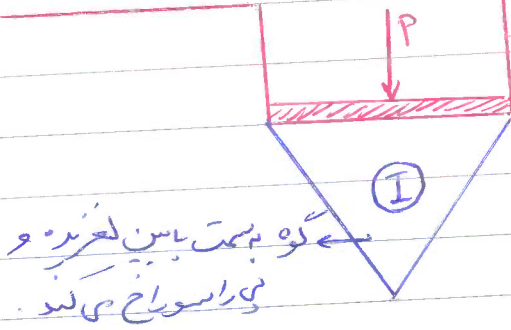 P
I
گوه به سمت پایین لغزیده و
پی را سوراخ می کند.